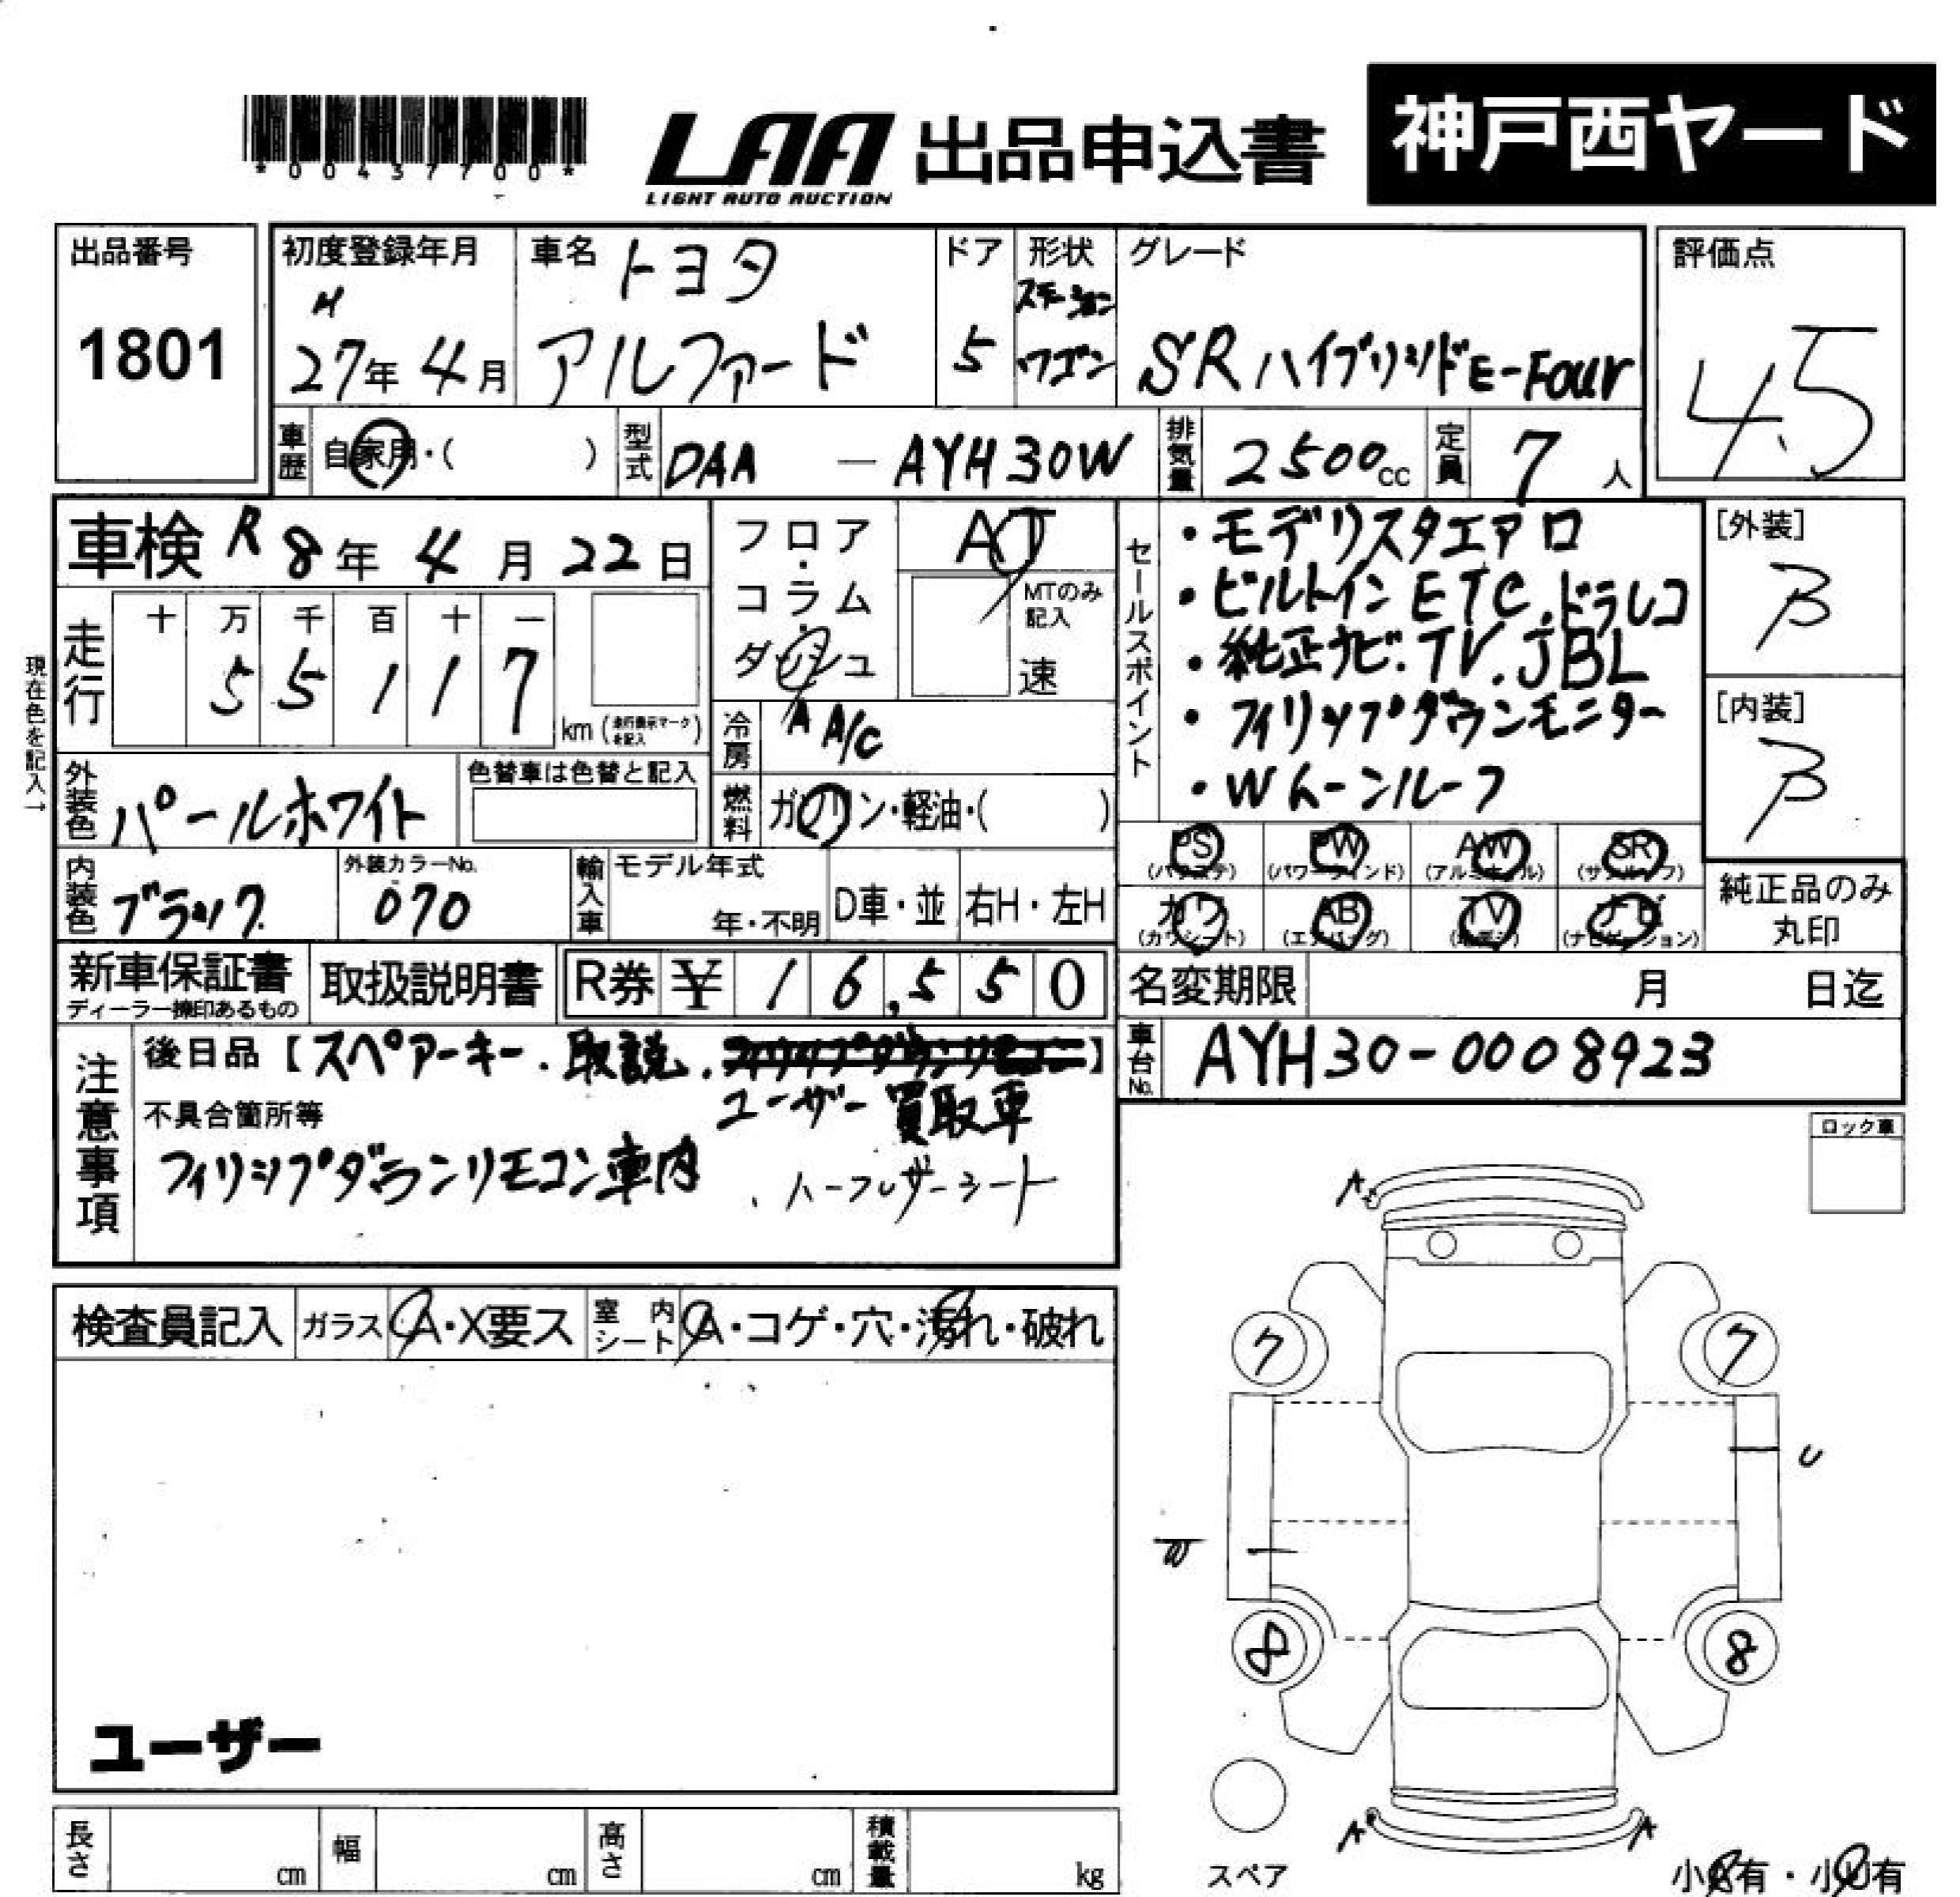 *00437700*
LAA 出品申込書 神戸西ヤード
LIGHT AUTO AUCTION
出品番号
1801
初度登録年月
H
27年 4月
車名 トヨタ
アルファード
ドア
5
形状
ステーション
ワゴン
グレード
SRハイブリッドE-Four
評価点
4.5
車歴 自家用・( )
型式 DAA — AYH30W
排気量 2500cc
定員 7人
車検 R8年 4月 22日
フロア・コラム・ダッシュ
AT
MTのみ記入
速
走行
十 万 千 百 十 一
5 5 1 1 7
km (走行表示マークを記入)
現在色を記入→
冷房 A A/C
燃料 ガソリン・軽油・( )
外装色 パールホワイト
色替車は色替と記入
内装色 ブラック
外装カラーNo.
070
輸入車 モデル年式
年・不明
D車・並
右H・左H
セールスポイント
・モデリスタエアロ
・ビルトインETC.ドラレコ
・純正ナビ.TV.JBL
・フィリップダウンモニター
・Wムーンルーフ
[外装]
B
[内装]
B
PS PW AW SR
(パワステ) (パワーウィンド) (アルミホイル) (サンルーフ)
カワ AB TV ナビ
(カワシート) (エアバッグ) (地デジ) (ナビゲーション)
純正品のみ
丸印
新車保証書
ディーラー捺印あるもの
取扱説明書
R券 ¥ 1 6,5 5 0
名変期限 月 日迄
車台No. AYH30-0008923
注意事項
後日品【スペアーキー.取説. 】
不具合箇所等
ユーザー買取車
フィリップダウンリモコン車内
.ハーフレザーシート
ロック車
検査員記入
ガラス A・X要ス
室内シート A・コゲ・穴・汚れ・破れ
ユーザー
A
7 7
U
W
8 8
A A
スペア
小A有・小U有
長さ cm
幅 cm
高さ cm
積載量 kg